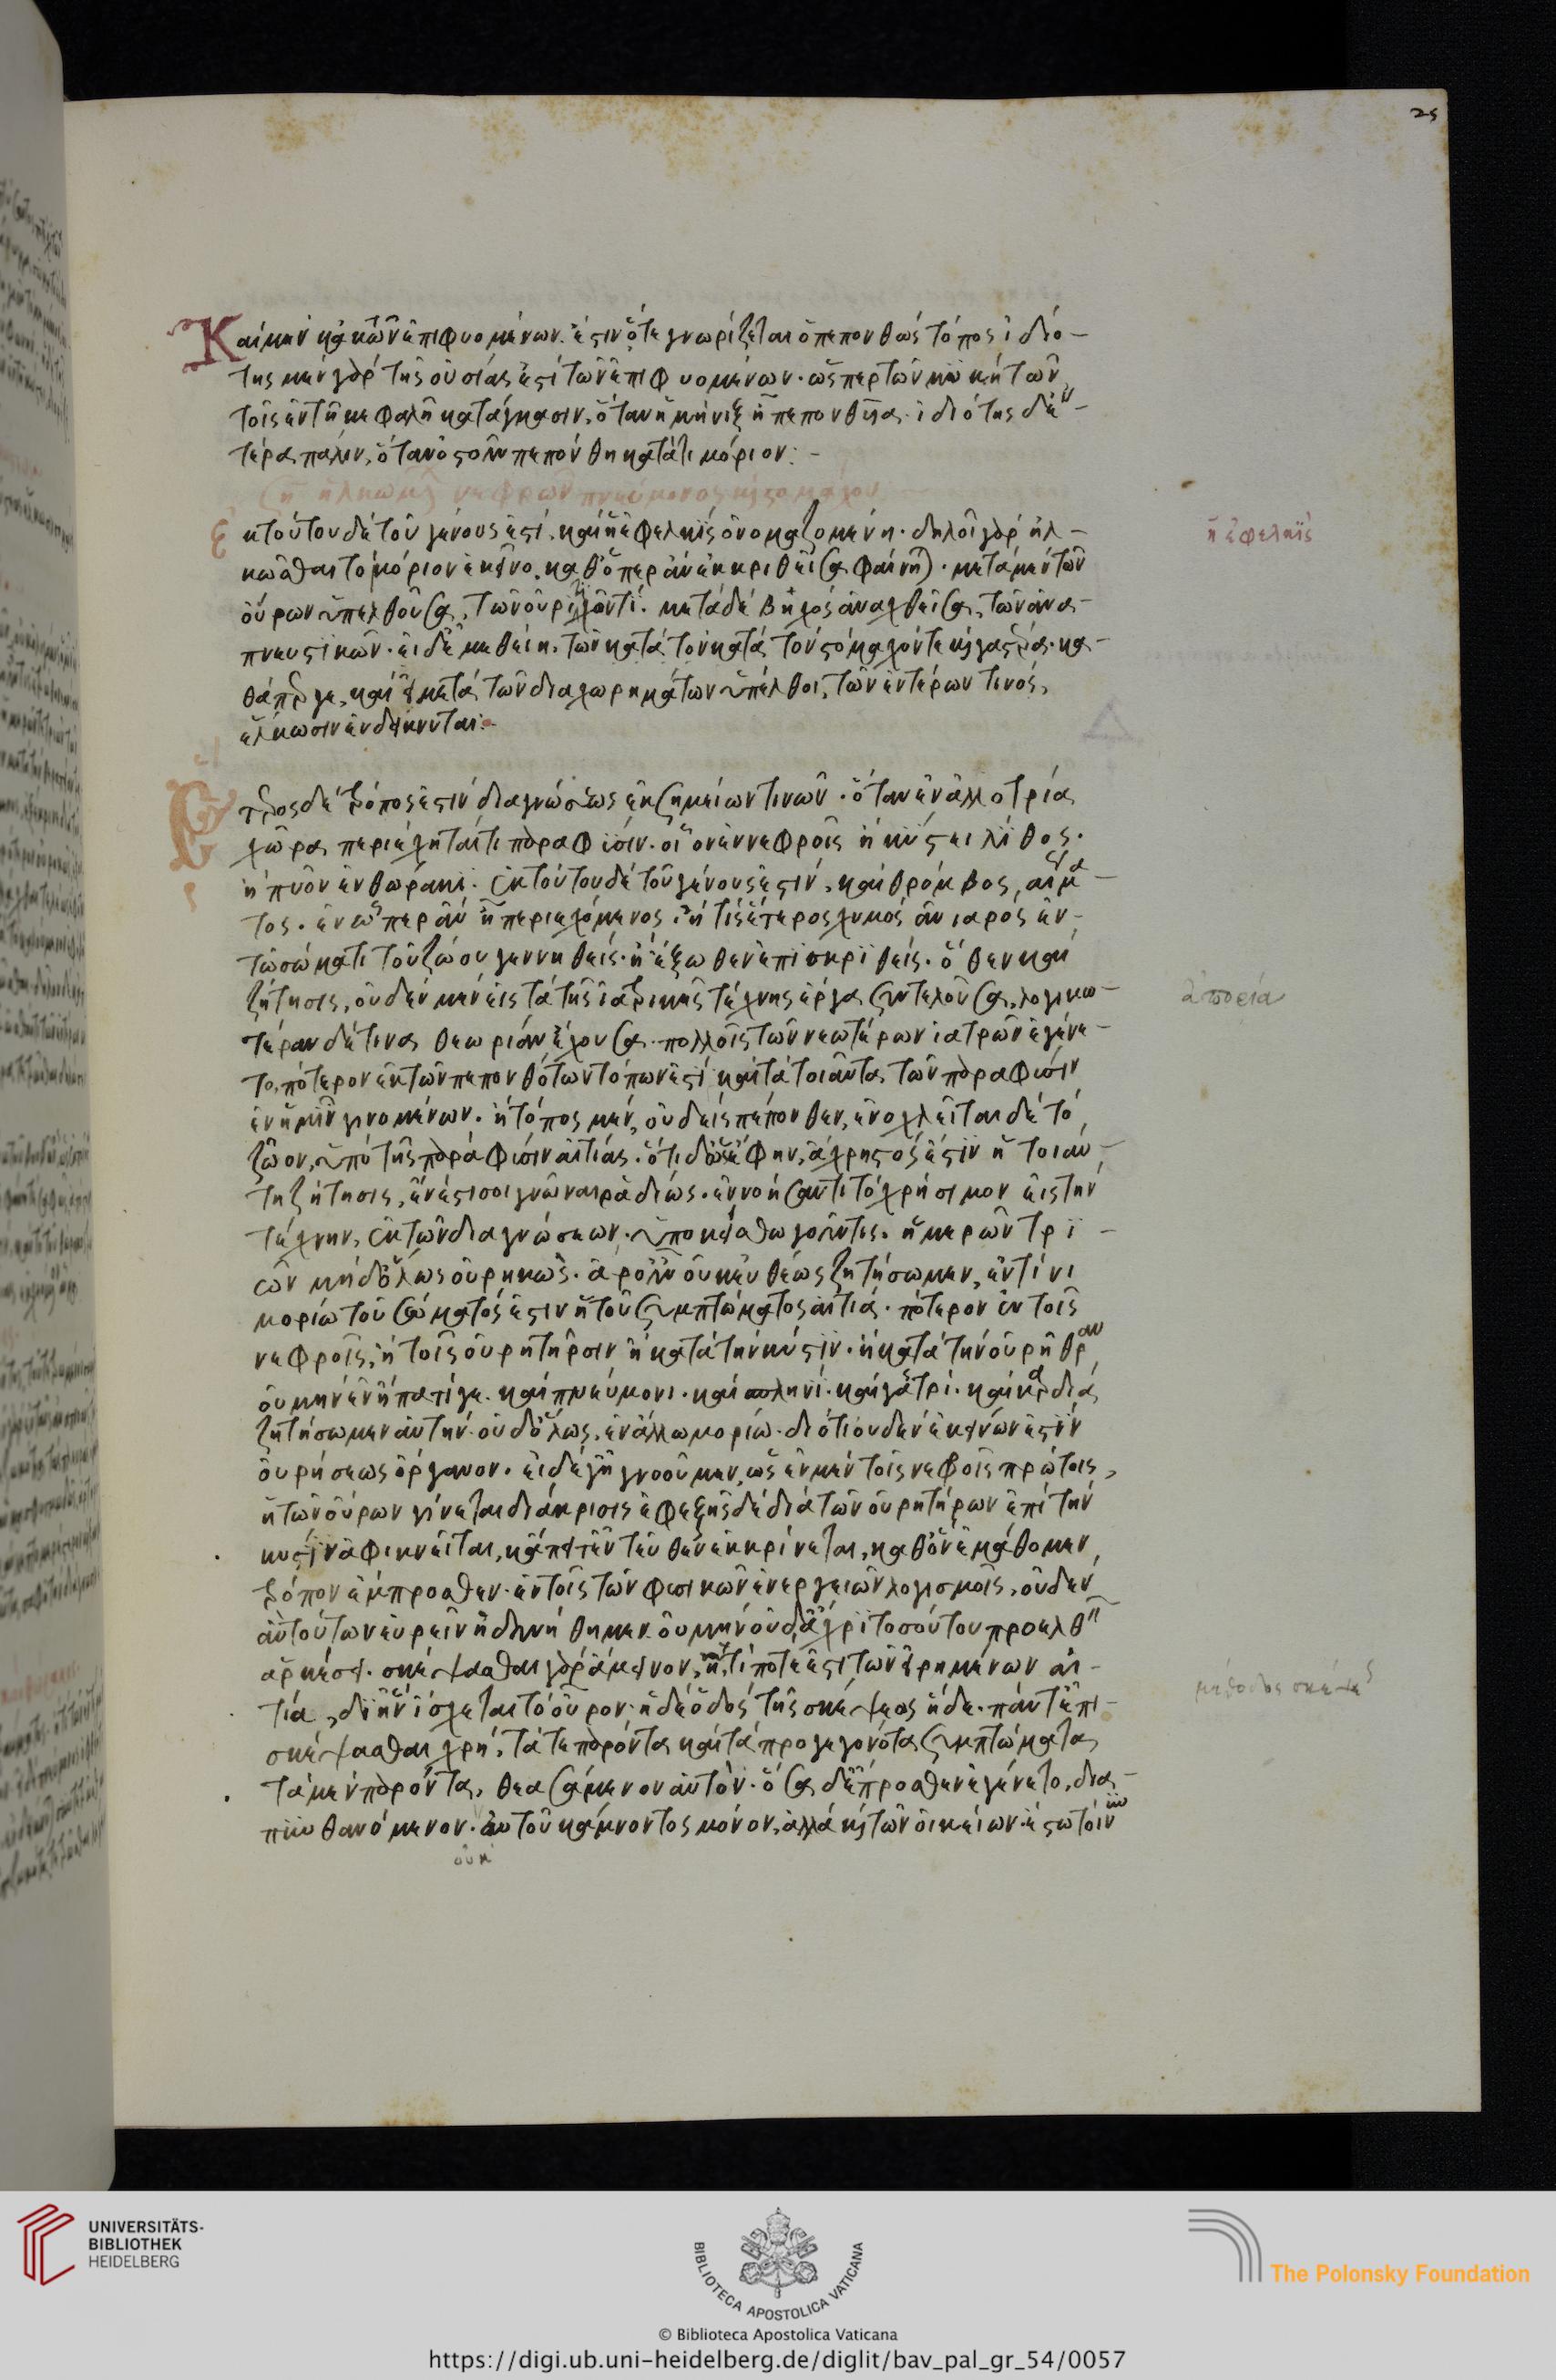 25
Καὶ μὲν κἀκ τῶν ἐπιφυομένων. ἔστιν ὅτε γνωρίζεται ὁ πεπονθὼς τόπος ἰδιό-
της μὲν γὰρ τῆς οὐσίας ἐστὶ τῶν ἐπιφυομένων. ὥσπερ τῶν μυκήτων
τοῖς ἐν τῇ κεφαλῇ κατάγμασιν, ὅταν ἡ μήνιξ ᾖ πεπονθυῖα. ἰδιότης δ' ἑ-
τέρα πάλιν, ὅταν ὀστοῦν πεπόνθη κατά τι μόριον:-
νεφρων πνεύμονος καὶ στομάχου
ἐκ τούτου δὲ τοῦ γένους ἐστί. καὶ ἡ ἐφελκὶς ὀνομαζομένη. δηλοῖ γὰρ ἡλ-
κῶσθαι τὸ μόριον ἐκεῖνο. καθ' ὅπερ ἂν ἐκκριθεῖσα φαίνηται. μετὰ μὲν τῶν
οὔρων ὑπελθοῦσα, τῶν οὐρικῶν τί. μετὰ δὲ βηχὸς ἀναχθεῖσα, τῶν ἀνα-
πνευστικῶν. εἰ δ' ἐμεθείη, τῶν κατὰ τὸν κατὰ τοὺς στόμαχόν τε καὶ γαστέρα. κα-
θάπερ γε, καὶ εἰ μετὰ τῶν διαχωρημάτων ὑπέλθοι, τῶν ἐντέρων τινὸς,
ἕλκωσιν ἐνδείκνυται:-
ἡ ἐφελκὶς
Ἕτερος δὲ τρόπος ἐστὶν διαγνώσεως ἐκ σημείων τινῶν. ὅταν ἐν ἀλλοτρία
χώρα περιέχηταί τι παρα φύσιν. οἷον ἐν νεφροῖς ἢ κύστει λίθος.
ἢ πῦον ἐν θώρακι. ἐκ τούτου δὲ τοῦ γένους ἐστὶν, καὶ θρόμβος, αἵμα-
τος. ἐν ὧπερ ἂν ᾖ περιεχόμενος. ἤ τις ἕτερος χυμὸς ἀνιαρὸς ἐν
τῶ σώματι τοῦ ζώου γεννηθείς. ἢ ἔξωθεν ἐπισκριθείς. ὅθεν καὶ
ζήτησις, οὐδὲν μὲν εἰς τὰ τῆς ἰατρικῆς τέχνης ἔργα συντελοῦσα, λογικω-
τέραν δέ τινα θεωρίαν ἔχουσα. πολλοῖς τῶν νεωτέρων ἰατρῶν ἐγένε-
το, πότερον ἐκ τῶν πεπονθότων τόπων ἐστὶ καὶ τὰ τοιαῦτα τῶν παρα φύσιν
ἐν ἡμῖν γινομένων. ἢ τόπος μὲν, οὐδεὶς πέπονθεν, ἐνοχλεῖται δὲ τὸ
ζῶον, ὑπὸ τῆς παρὰ φύσιν αἰτίας. ὅτι δ' ὡς ἔφην, ἄχρηστός ἐστιν ἡ τοιαύ-
τη ζήτησις, ἔνεστί σοι γνῶναι ῥαδίως. ἐννοήσαντι τὸ χρήσιμον εἰς τὴν
τέχνην, ἐκ τῶν διαγνώσεων. ὑποκείσθω γοῦν τις. ἡμερῶν τρι-
ῶν μηδ' ὅλως οὐρηκώς. ἆρ' οὖν οὐκ εὐθέως ζητήσωμεν, ἐν τίνι
μορίω τοῦ σώματός ἐστιν ἡ τοῦ συμπτώματος αἰτία. πότερον ἐν τοῖς
νεφροῖς, ἢ τοῖς οὐρητῆρσιν ἢ κατὰ τὴν κύστιν. ἢ κατὰ τὴν οὐρήθραν
οὐ μὴν ἐν ἥπατί γε. καὶ πνεύμονι. καὶ σπληνί. καὶ γαστρί. καὶ καρδία
ζητήσωμεν αὐτὴν. οὐδ' ὅλως, ἐν ἄλλω μορίω. διότι οὐδὲν ἐκείνων ἐστὶν
οὐρήσεως ὄργανον. εἰ δέ γε ἠγνοοῦμεν, ὡς ἐν μὲν τοῖς νεφροῖς πρώτοις,
ἡ τῶν οὔρων γίνεται διάκρισις ἐφεξῆς δὲ διὰ τῶν οὐρητήρων ἐπὶ τὴν
κύστιν ἀφικνεῖται, κἄπειτ' ἐντεῦθεν ἐκκρίνεται, καθ' ὃν ἐμάθομεν
τρόπον ἔμπροσθεν. ἐν τοῖς τῶν φυσικῶν ἐνεργειῶν λογισμοῖς, οὐδεν
ἂν τούτων εὑρεῖν ἠδυνήθημεν. οὐ μὴν οὐδ' ἄχρι τοσούτου προελθεῖν
ἀρκέσει. σκέψασθαι γὰρ ἄμεινον, ἥτις ποτέ ἐστι τῶν εἰρημένων αἰ-
τία, δι' ἣν ἴσχεται τὸ οὖρον. ἡ δὲ ὁδὸς τῆς σκέψεως ἥδε. πάντ' ἐπι-
σκέψασθαι χρή, τά τε παρόντα καὶ τὰ προγεγονότα συμπτώματα
τὰ μὲν παρόντα, θεασάμενον αὐτὸν. ὅσα δ' ἔμπροσθεν ἐγένετο, δια-
πυνθανόμενον. αὐτοῦ κάμνοντος μόνον, ἀλλὰ καὶ τῶν οἰκείων. ἔστω τοίνυν
οὐκ
ἀπορία
μέθοδος σκέψεως
UNIVERSITÄTS-
BIBLIOTHEK
HEIDELBERG
BIBLIOTECA APOSTOLICA VATICANA
The Polonsky Foundation
© Biblioteca Apostolica Vaticana
https://digi.ub.uni-heidelberg.de/diglit/bav_pal_gr_54/0057